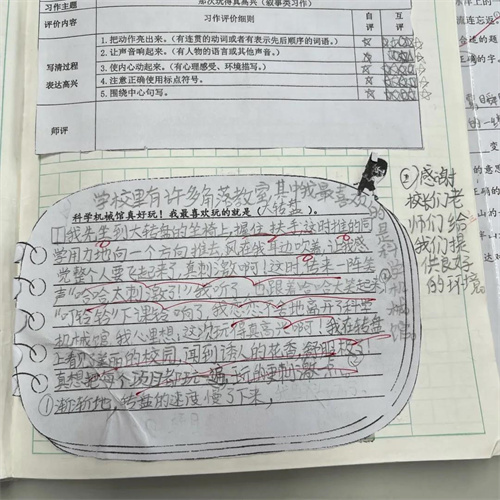 习作主题
那次玩得真高兴（叙事类习作）
评价内容
习作评价细则
自评
互评
写清过程
表达高兴
1.把动作亮出来。（有连贯的动词或者有表示先后顺序的词语。）
2.让声音响起来。（有人物的语言或其他声音。）
3.使内心动起来。（有心理感受、环境描写。）
4.注意正确使用标点符号。
5.围绕中心句写。
师评
学校里有许多角落教室,其中我最喜欢
的是科学机械馆
科学机械馆真好玩！我最喜欢玩的就是（大转盘）。
①我先坐到大转盘的坐椅上,握住扶手,这时推的同
学用力地向一个方向推去,风在我耳边吹着,让我感
觉整个人要飞起来了,真刺激啊！这时传来一阵笑
声“哈哈太刺激了！”我听了,也跟着哈哈大笑起来
“叮铃铃”下课铃响了,我恋恋不舍地离开了科学
机械馆,我心里想,这次玩得真高兴啊！我在转盘
上看见美丽的校园,闻到诱人的花香,舒服极了！
真想把每个项目都玩一遍,玩的更刺激点
①渐渐地,转盘的速度慢了下来,
②感谢
校长们老
师们给
我们提
供良好
的环境